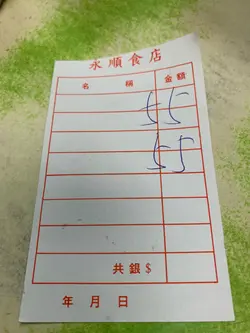 永順食店
名 稱 金額
55
55
共銀$
年 月 日